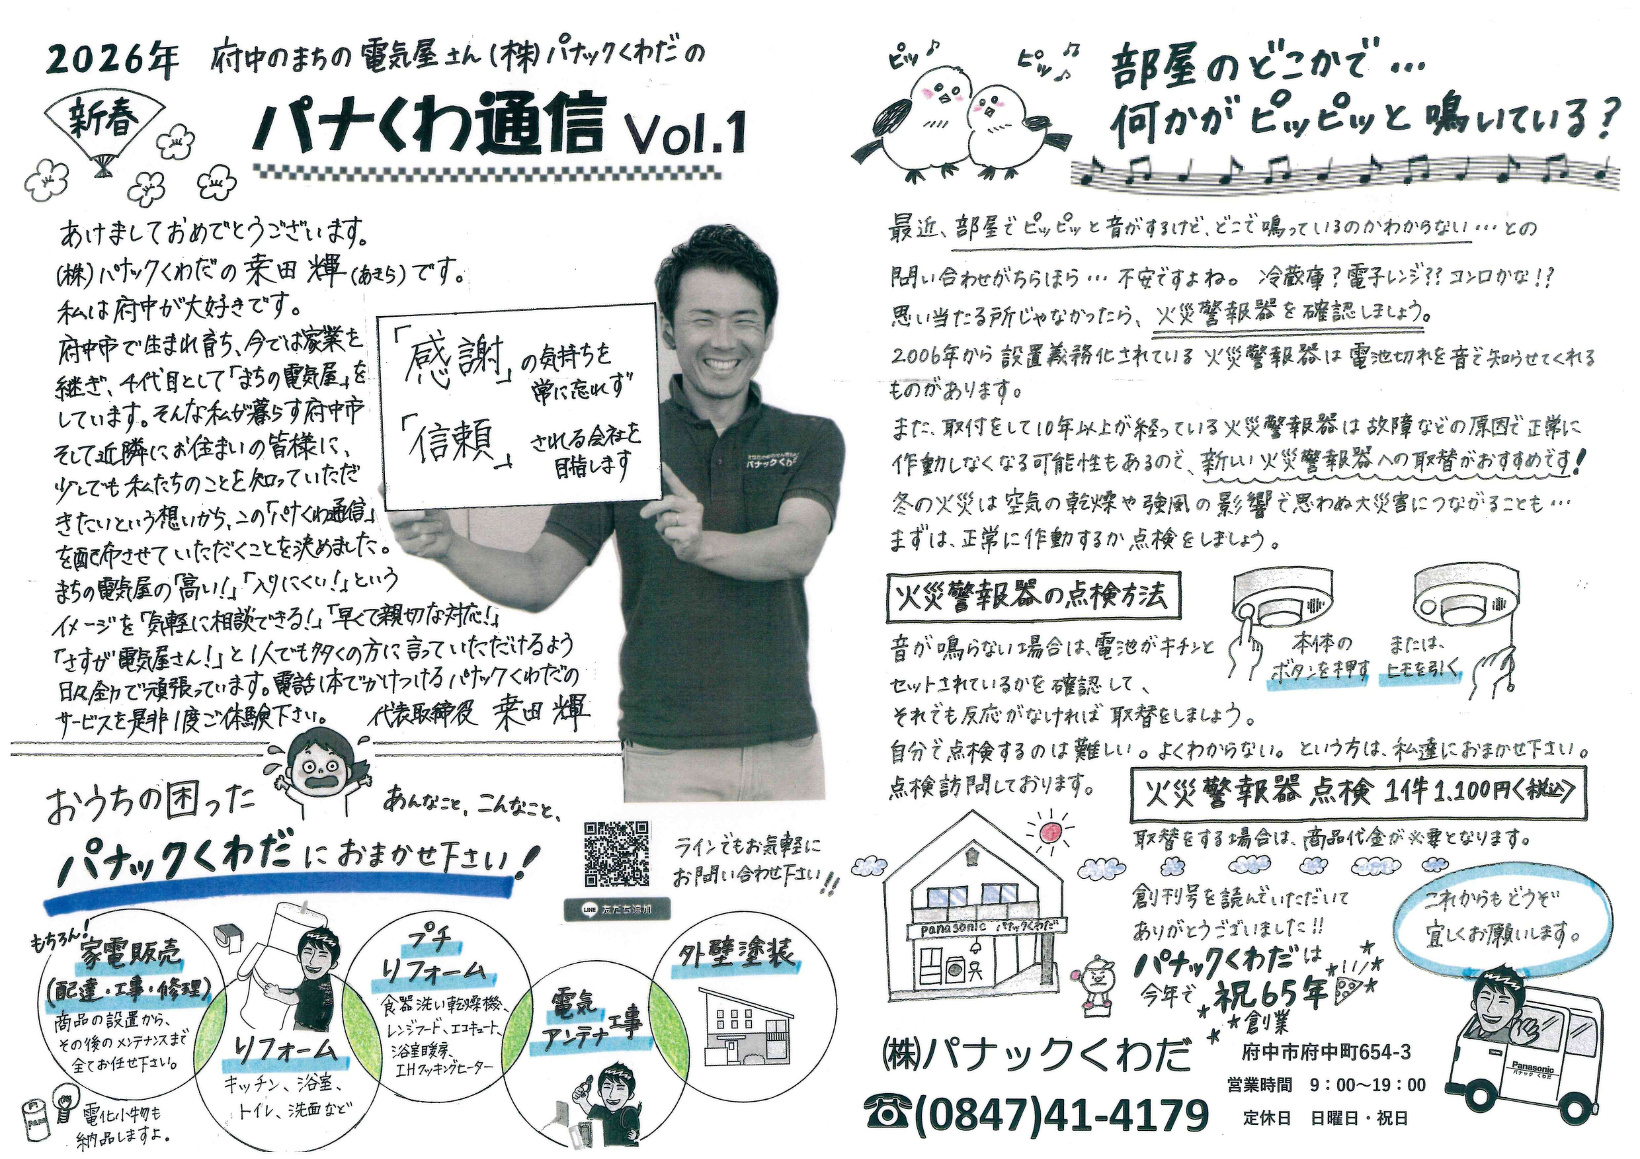 2026年 府中のまちの電気屋さん(株)パナックくわだの
新春
パナくわ通信 Vol.1
あけましておめでとうございます。
(株)パナックくわだの桒田 輝(あきら)です。
私は府中が大好きです。
府中市で生まれ育ち、今では家業を
継ぎ、4代目として「まちの電気屋」を
しています。そんな私が暮らす府中市
そして近隣にお住まいの皆様に、
少しでも私たちのことを知っていただ
きたいという想いから、この「パナくわ通信」
を配布させていただくことを決めました。
まちの電気屋の「高い!」「入りにくい!」という
イメージを「気軽に相談できる!」「早くて親切な対応!」
「さすが電気屋さん!」と1人でも多くの方に言っていただけるよう
日々全力で頑張っています。電話1本でかけつけるパナックくわだの
サービスを是非1度ご体験下さい。 代表取締役 桒田 輝
「感謝」の気持ちを
常に忘れず
「信頼」される会社を
目指します
パナックくわだ
おうちの困った あんなこと、こんなこと、
パナックくわだにおまかせ下さい!
ラインでもお気軽に
お問い合わせ下さい!!
LINE 友だち追加
もちろん!
家電販売
(配達・工事・修理)
商品の設置から、
その後のメンテナンスまで
全てお任せ下さい。
電化小物も
納品しますよ。
リフォーム
キッチン、浴室、
トイレ、洗面など
プチ
リフォーム
食器洗い乾燥機、
レンジフード、エコキュート、
浴室暖房、
IHクッキングヒーター
電気
アンテナ工事
外壁塗装
ピッ♪
ピッ♪
部屋のどこかで…
何かがピッピッと鳴いている?
最近、部屋でピッピッと音がするけど、どこで鳴っているのかわからない…との
問い合わせがちらほら… 不安ですよね。 冷蔵庫?電子レンジ??コンロかな!?
思い当たる所じゃなかったら、火災警報器を確認しましょう。
2006年から設置義務化されている火災警報器は電池切れを音で知らせてくれる
ものがあります。
また、取付をして10年以上が経っている火災警報器は故障などの原因で正常に
作動しなくなる可能性もあるので、新しい火災警報器への取替がおすすめです!
冬の火災は空気の乾燥や強風の影響で思わぬ大災害につながることも…
まずは、正常に作動するか点検をしましょう。
火災警報器の点検方法
本体の
ボタンを押す
または、
ヒモを引く
音が鳴らない場合は、電池がキチンと
セットされているかを確認して、
それでも反応がなければ取替をしましょう。
自分で点検するのは難しい。よくわからない。という方は、私達におまかせ下さい。
点検訪問しております。
火災警報器点検 1件1.100円<税込>
取替をする場合は、商品代金が必要となります。
Panasonic パナックくわだ
創刊号を読んでいただいて
ありがとうございました!!
パナックくわだは
今年で祝65年
創業
これからもどうぞ
宜しくお願いします。
Panasonic
パナックくわだ
(株)パナックくわだ
☎(0847)41-4179
府中市府中町654-3
営業時間 9:00〜19:00
定休日 日曜日・祝日